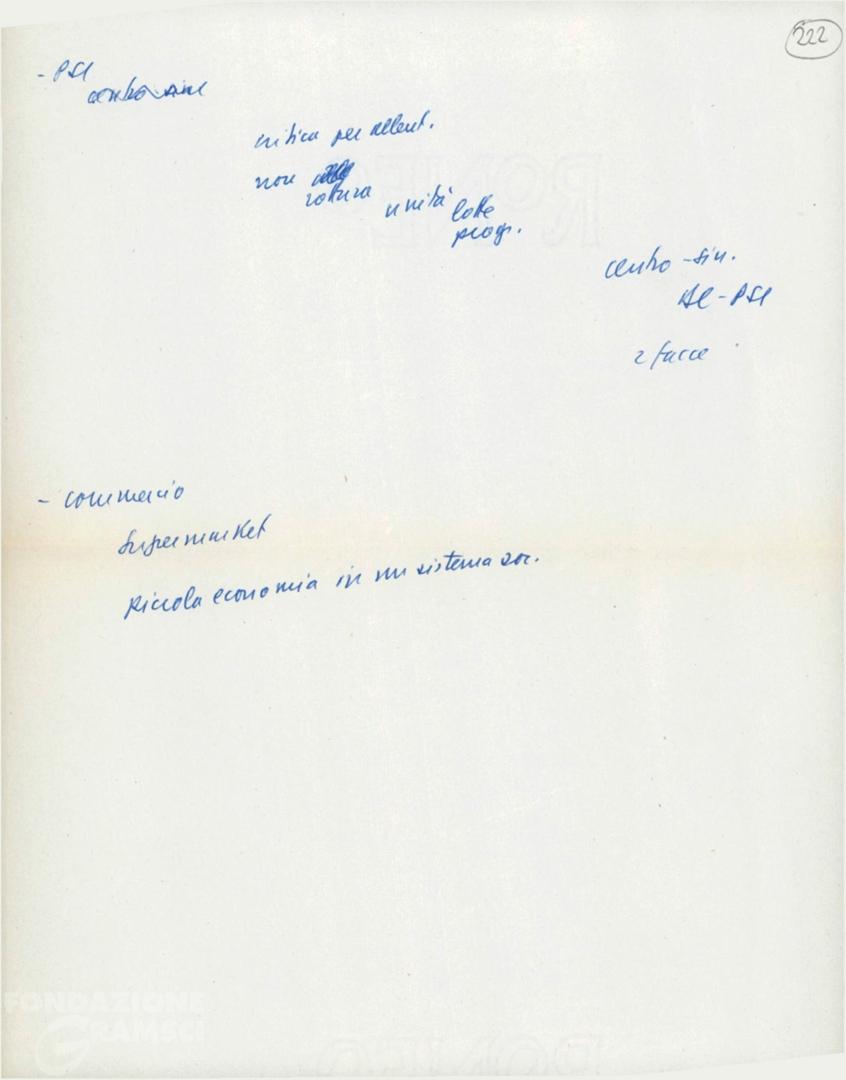 222
- PSI
centro-sin
critica per allent.
non
rottura
unità lotte
progr.
centro-sin.
DC-PSI
2 facce
- commercio
Supermarket
piccola economia in un sistema soc.
FONDAZIONE
GRAMSCI